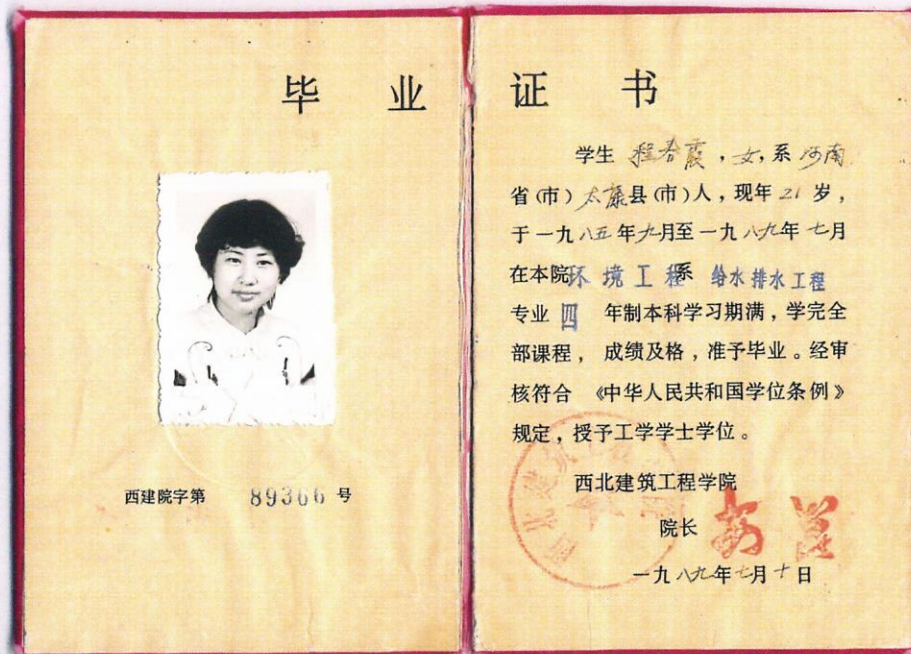 毕 业 证 书
西建院字第 89366 号
学生 程春霞，女，系 河南
省(市) 太康县(市)人，现年 21 岁，
于一九八五年九月至一九八九年七月
在本院环境工程系 给水排水工程
专业 四 年制本科学习期满，学完全
部课程，成绩及格，准予毕业。经审
核符合 《中华人民共和国学位条例》
规定，授予工学学士学位。
西北建筑工程学院
院长
一九八九年七月十日